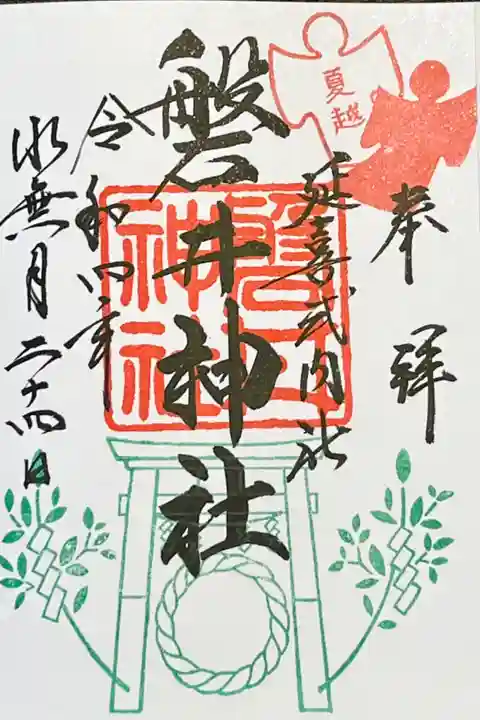 奉拝
夏越
延喜式内社
磐井神社
令和四年
水無月二十四日